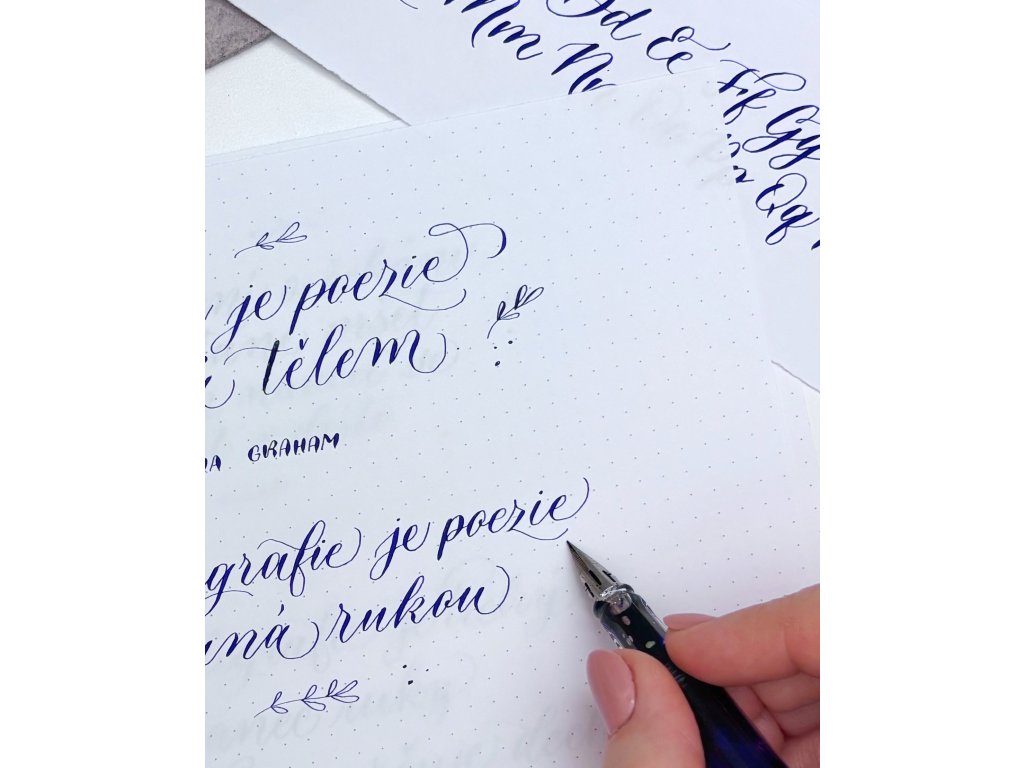 Dd Ee
Mm Nn
Ff Gg
Qq
je poezie
tělem
GRAHAM
grafie je poezie
rukou